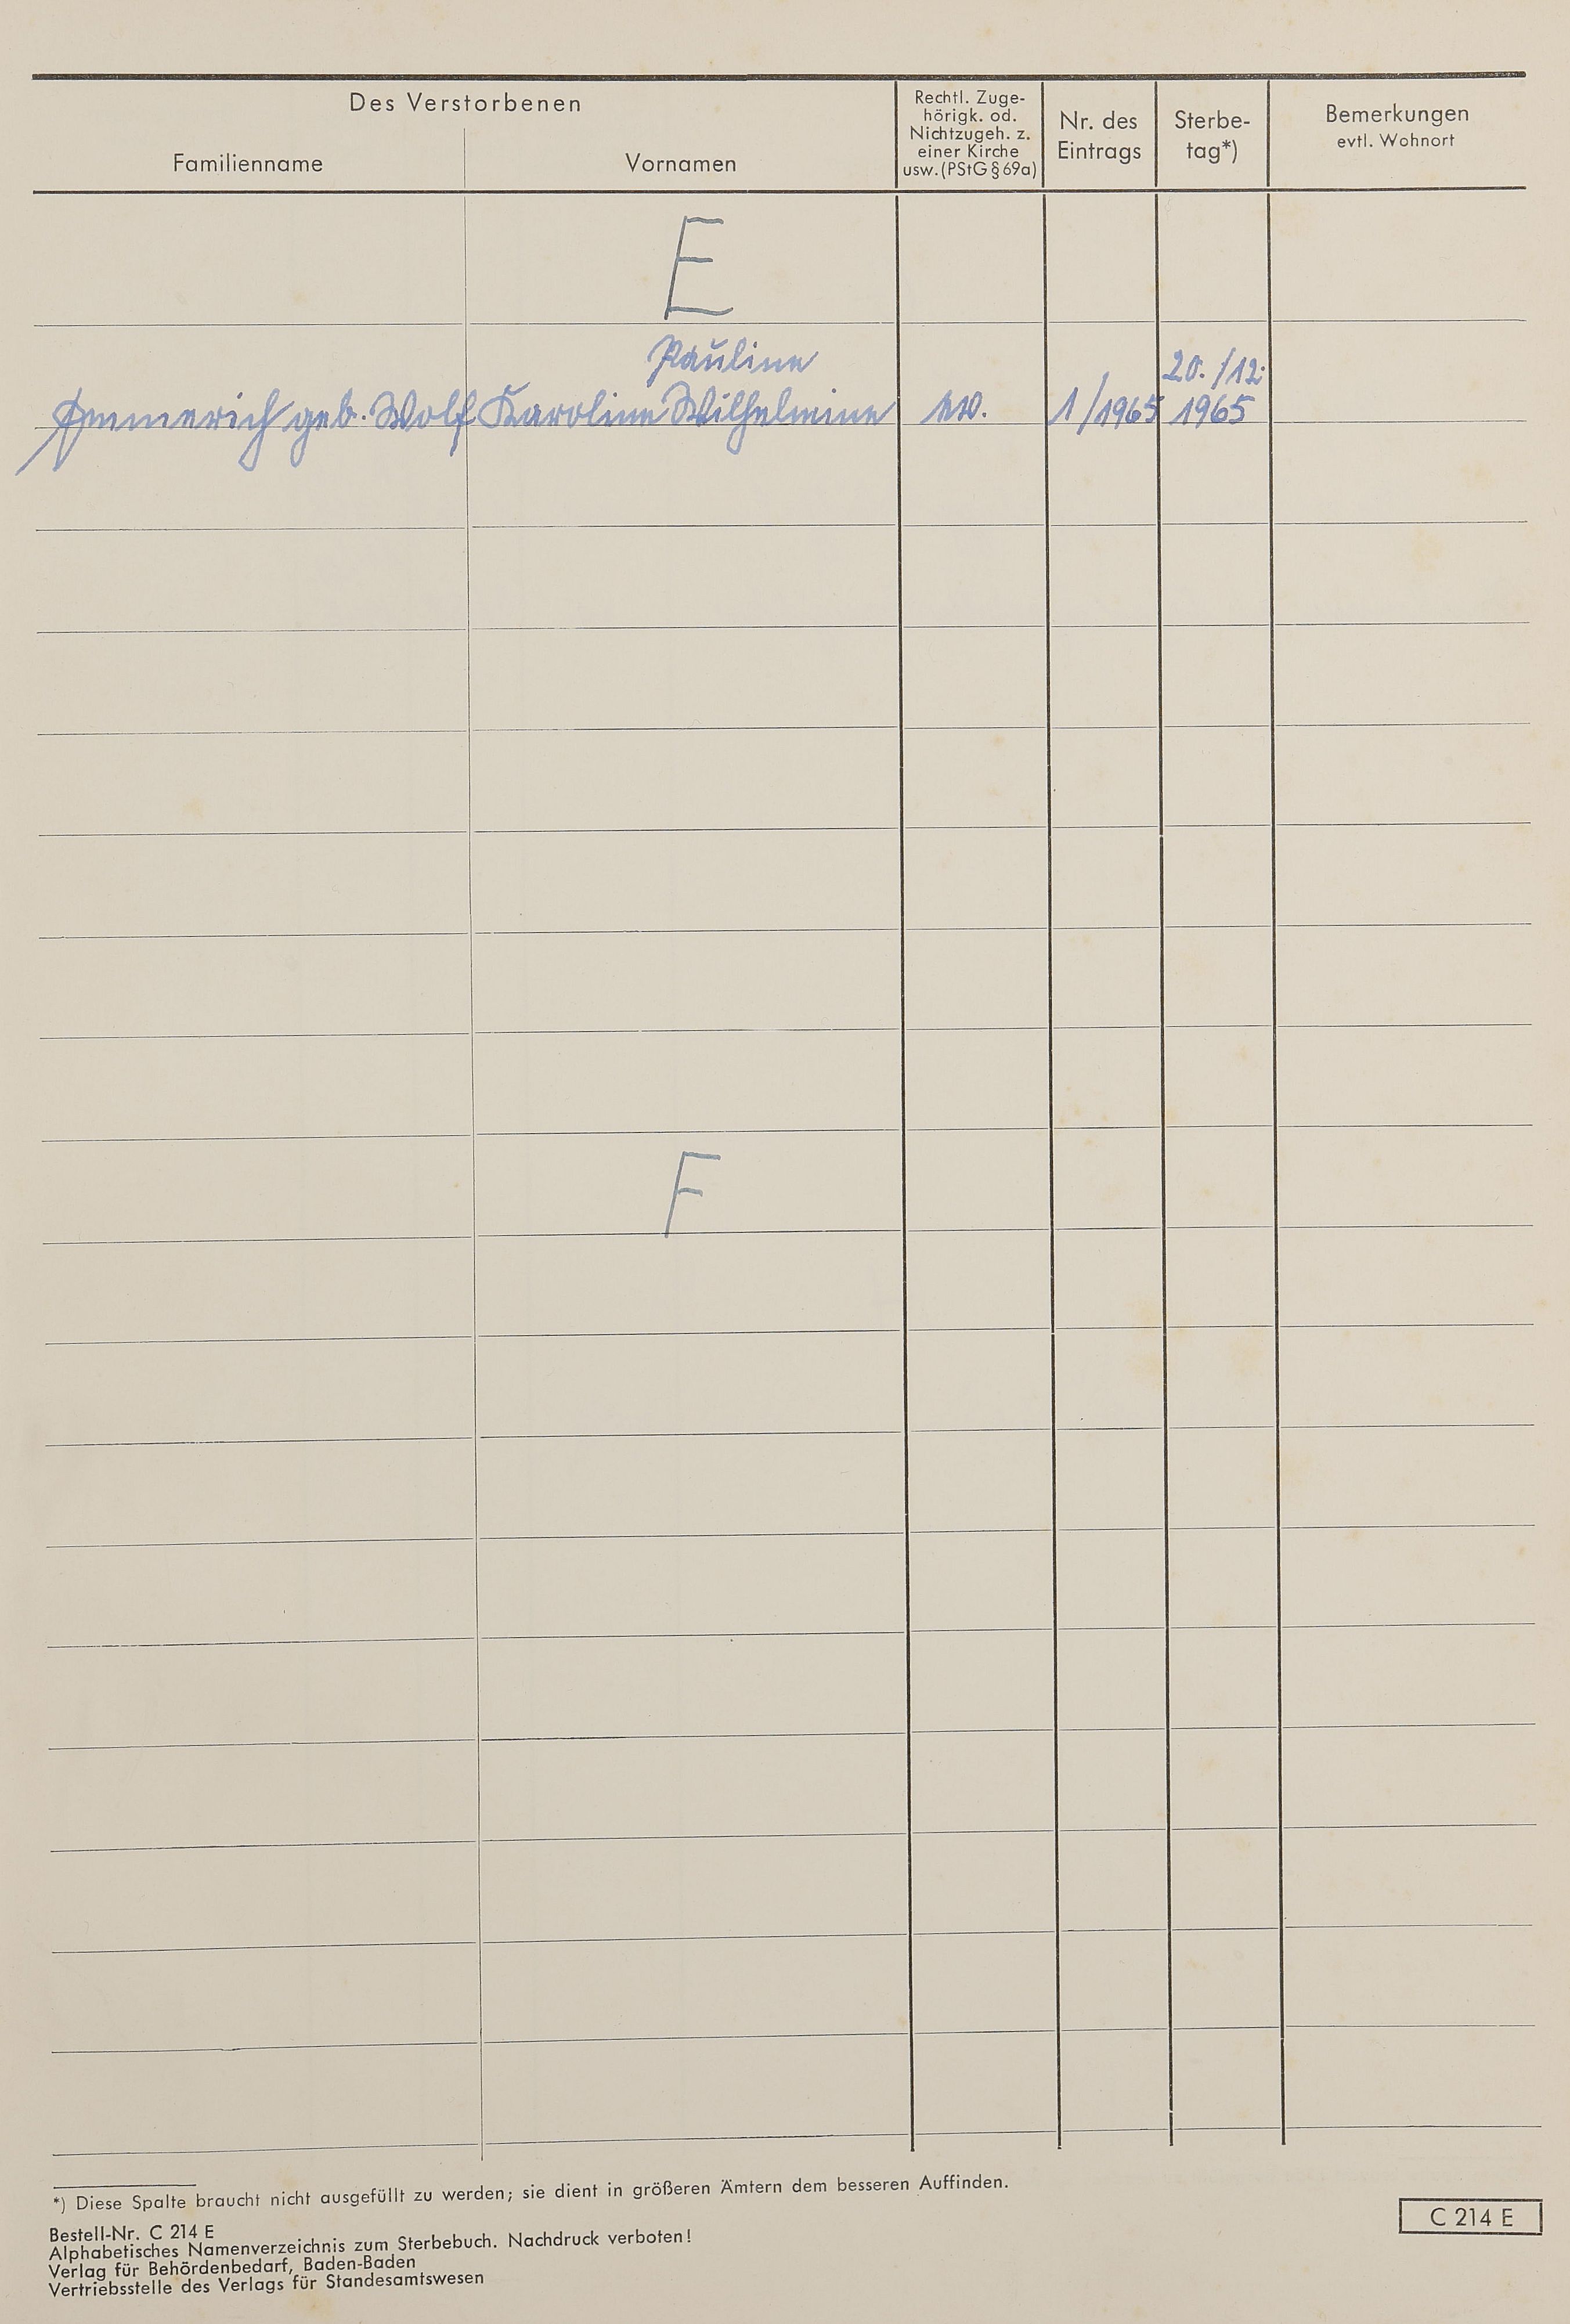 Des Verstorbenen
Familienname
Vornamen
Rechtl. Zuge-
hörigk. od.
Nichtzugeh. z.
einer Kirche
usw. (PStG § 69a)
Nr. des
Eintrags
Sterbe-
tag*)
Bemerkungen
evtl. Wohnort
E
Pauline
Emmerich geb. Wolf Karoline Wilhelmine ev. 1/1965 20./12. 1965
F
*) Diese Spalte braucht nicht ausgefüllt zu werden; sie dient in größeren Ämtern dem besseren Auffinden.
Bestell-Nr. C 214 E
Alphabetisches Namenverzeichnis zum Sterbebuch. Nachdruck verboten!
Verlag für Behördenbedarf, Baden-Baden
Vertriebsstelle des Verlags für Standesamtswesen
C 214 E